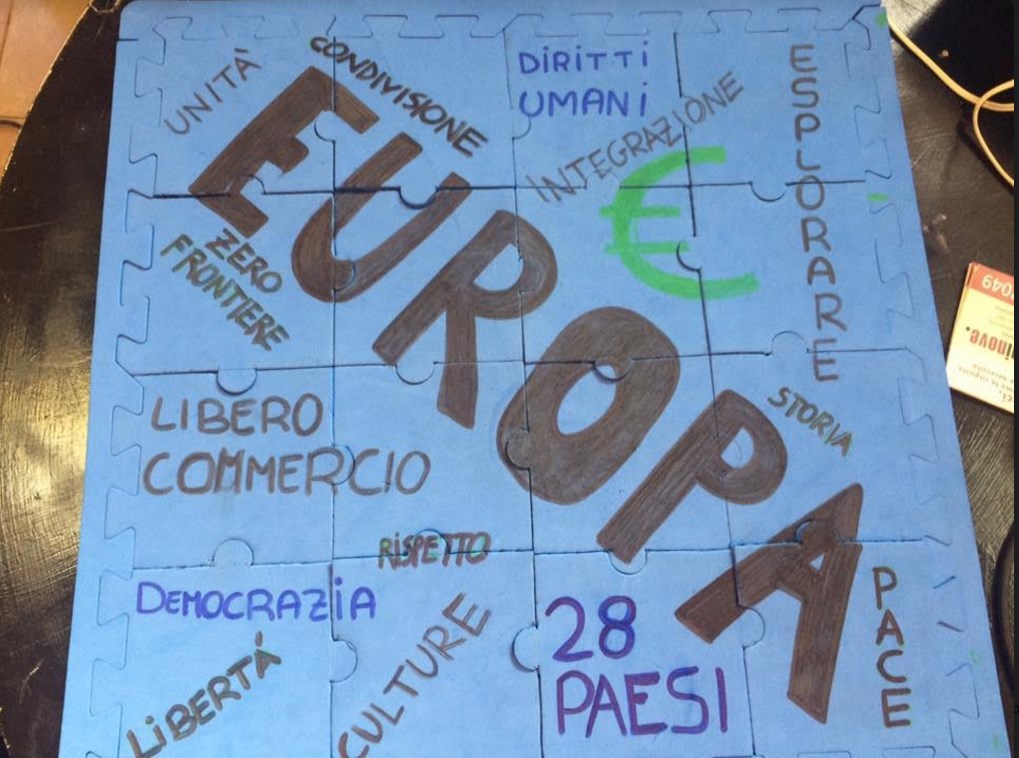 UNITÀ
CONDIVISIONE
DiRiTTi
UMANi
INTEGRAZIONE
€
ESPLORARE
EUROPA
ZERO
FRONTIERE
STORIA
LIBERO
COMMERCIO
RiSPETTO
DEMOCRAZiA
LiBERTÁ
CULTURE
28
PAESI
PACE